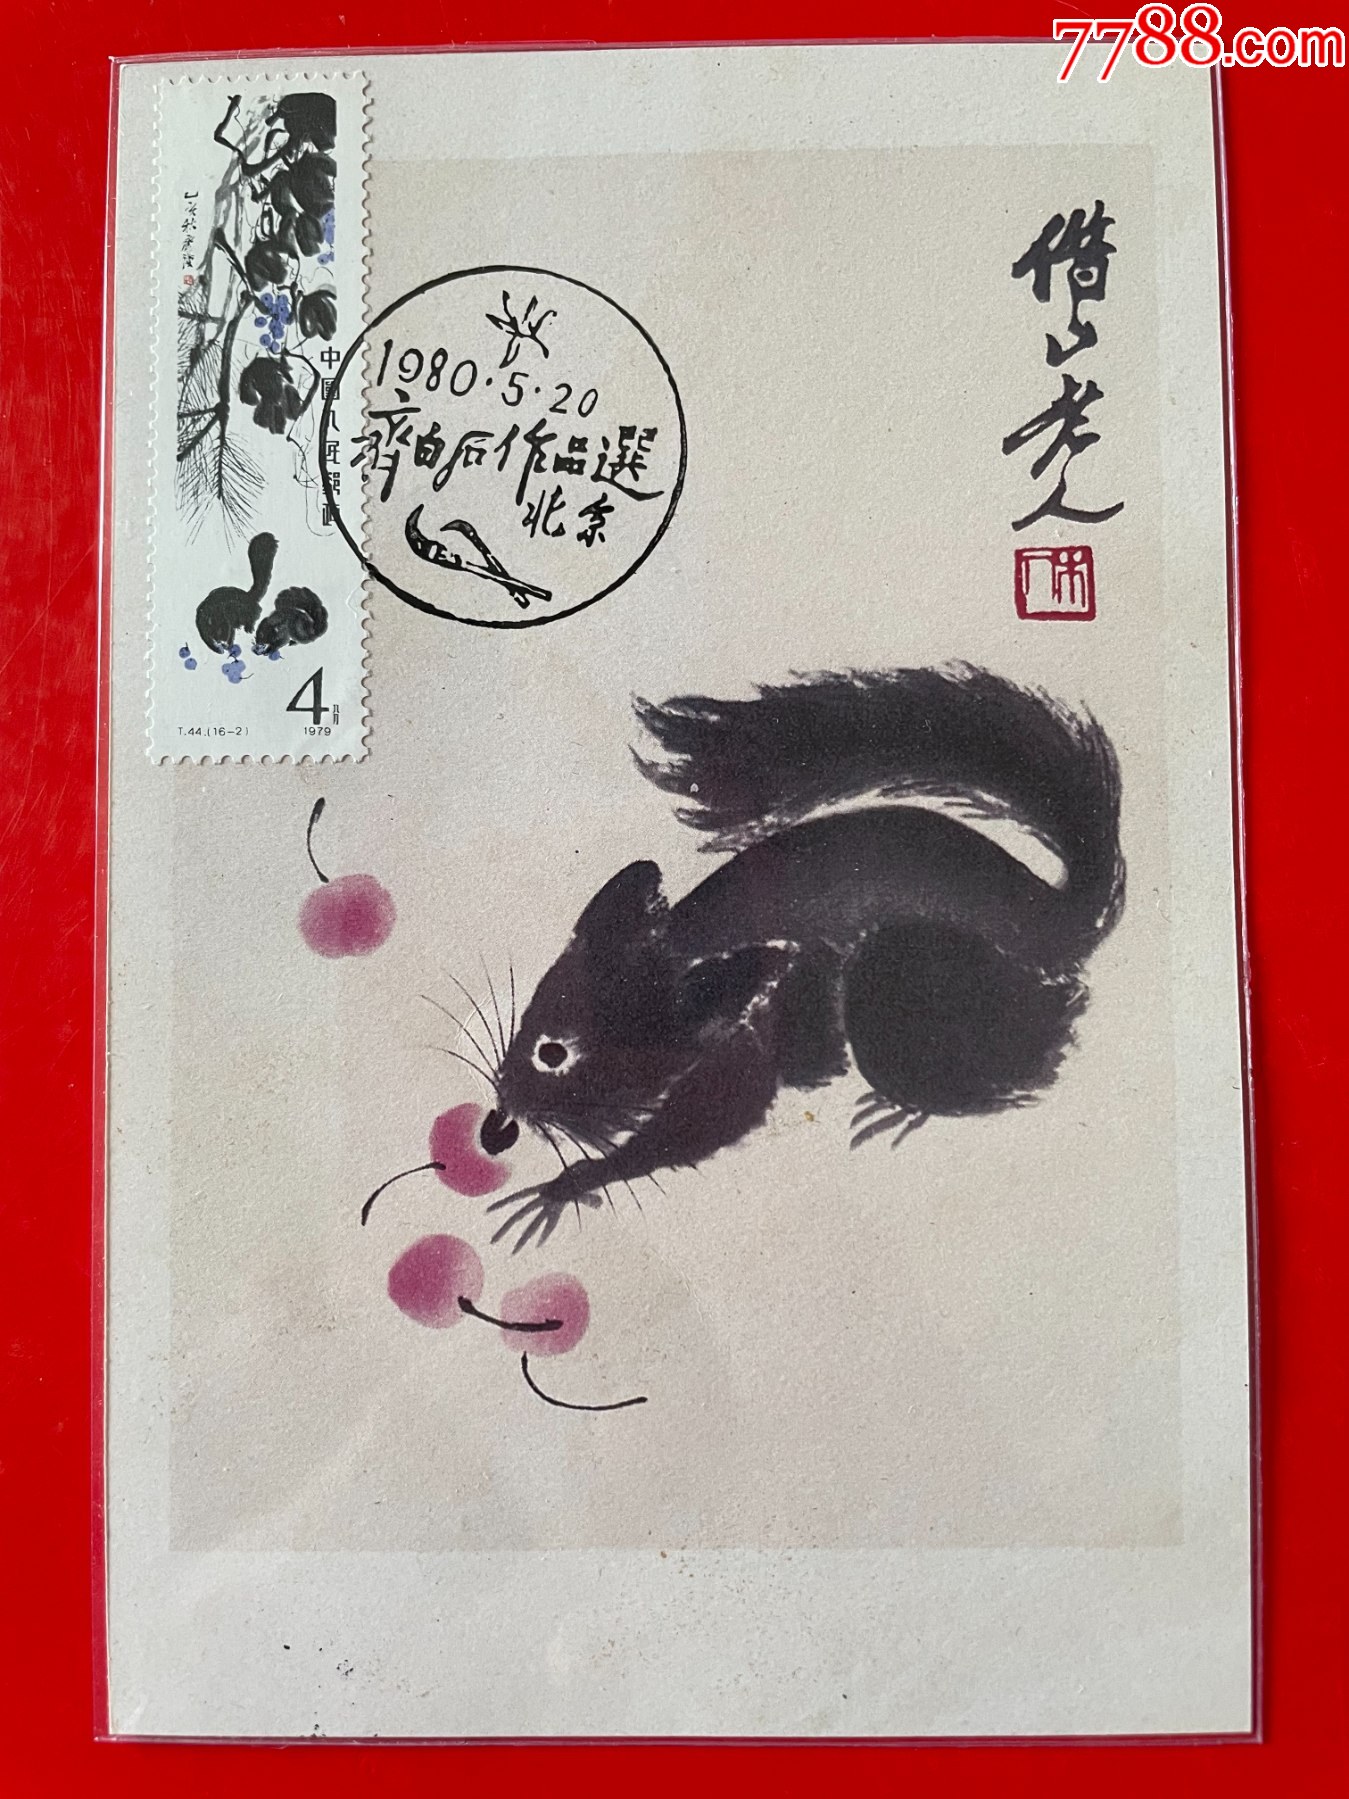 7788.com
乙亥秋齐璜
中国人民邮政
4分
T.44.(16-2) 1979
1980·5·20
齊白石作品選
北京
借山老人
木人